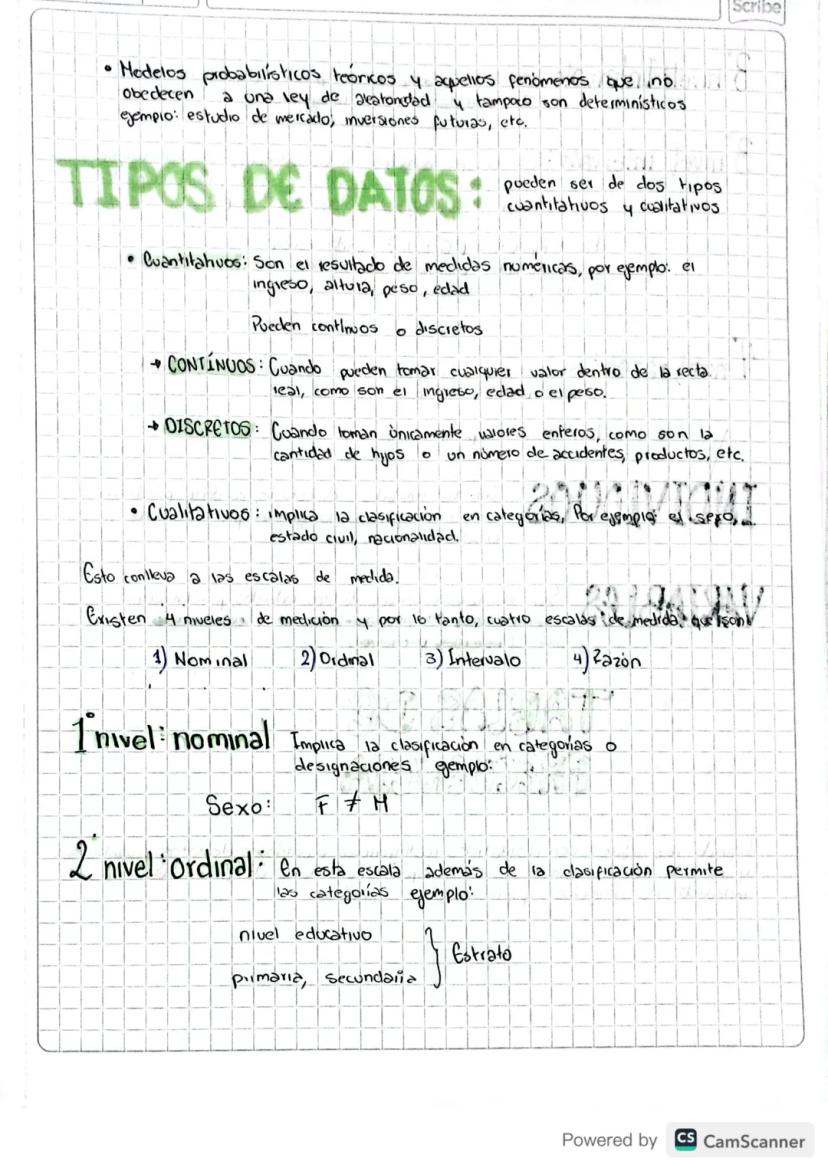 Scribe
• Modelos probabilísticos teóricos y aquellos fenómenos que no
obedecen a una ley de aleatoriedad y tampoco son determinísticos
ejemplo: estudio de mercado; inversiones futuras, etc.
TIPOS DE DATOS: pueden ser de dos tipos
cuantitativos y cualitativos
• Cuantitativos: Son el resultado de medidas numéricas, por ejemplo: el
ingreso, altura, peso, edad
Pueden continuos o discretos
→ CONTÍNUOS: Cuando pueden tomar cualquier valor dentro de la recta
real, como son el ingreso, edad o el peso.
→ DISCRETOS: Cuando toman únicamente valores enteros, como son la
cantidad de hijos o un número de accidentes, productos, etc.
• Cualitativos: implica la clasificación en categorías, Por ejemplo: el sexo,
estado civil, nacionalidad.
Esto conlleva a las escalas de medida.
Existen 4 niveles de medición y por lo tanto, cuatro escalas de medida, que son
1) Nominal 2) Ordinal 3) Intervalo 4) Razón
1° nivel: nominal Implica la clasificación en categorías o
designaciones ejemplo:
Sexo: F ≠ M
2° nivel: ordinal: En esta escala además de la clasificación permite
las categorías ejemplo:
nivel educativo
primaria, secundaria } Estrato
Powered by CS CamScanner